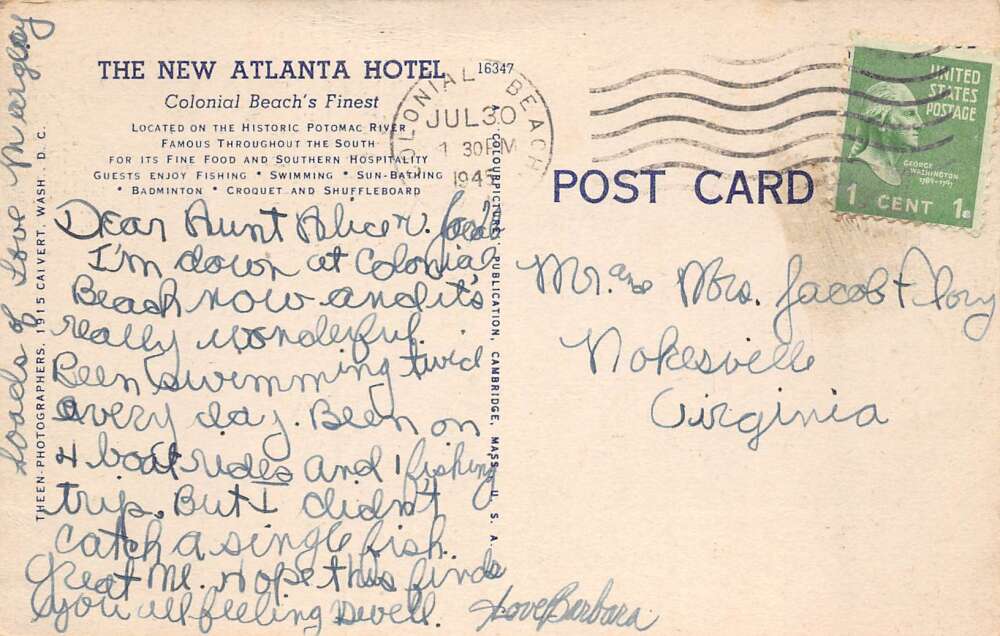 THE NEW ATLANTA HOTEL
Colonial Beach's Finest
LOCATED ON THE HISTORIC POTOMAC RIVER
FAMOUS THROUGHOUT THE SOUTH
FOR ITS FINE FOOD AND SOUTHERN HOSPITALITY
GUESTS ENJOY FISHING • SWIMMING • SUN-BATHING
• BADMINTON • CROQUET AND SHUFFLEBOARD
16347
COLONIAL BEACH
JUL 30
1 30 PM
194
UNITED
STATES
POSTAGE
GEORGE
WASHINGTON
1789-1797
1 CENT 1¢
POST CARD
Dear Aunt Alice & Jacob
I'm down at Colonial
Beach now and it's
really wonderful.
Been swimming twice
every day. Been on
4 boat rides and 1 fishing
trip. But I didn't
catch a single fish.
Great me. Hope this finds
you all feeling swell.
Love Barbara
Loads of Love
THEEN-PHOTOGRAPHERS, 1915 CALVERT, WASH. D. C.
A COLOURPICTURE PUBLICATION, CAMBRIDGE, MASS., U. S. A.
Mr. and Mrs. Jacob Flory
Nokesville
Virginia